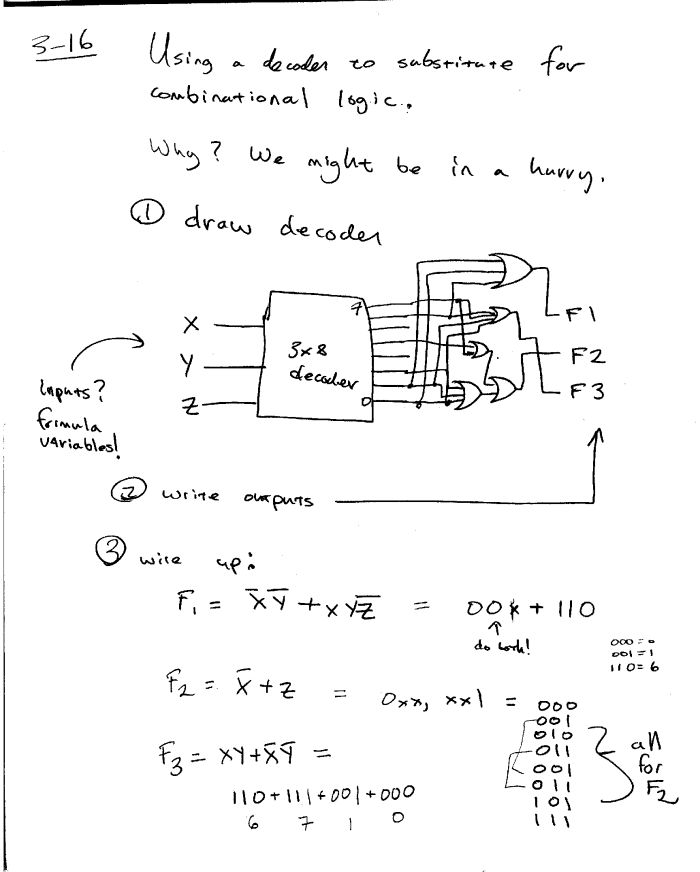 3-16 Using a decoder to substitute for
combinational logic.
Why? We might be in a hurry.
① draw decoder
X
Y
Z
3x8
decoder
7
0
F1
F2
F3
inputs?
formula
variables!
② write outputs
③ wire up:
F₁ = X̅Y̅ + XYZ̅ = 00x + 110
do both!
000 = 0
001 = 1
110 = 6
F₂ = X̅ + Z = 0xx, xx1 = 000
001
010
011
001
011
101
111
all
for
F₂
F₃ = XY + X̅Y̅ =
110 + 111 + 001 + 000
6 7 1 0